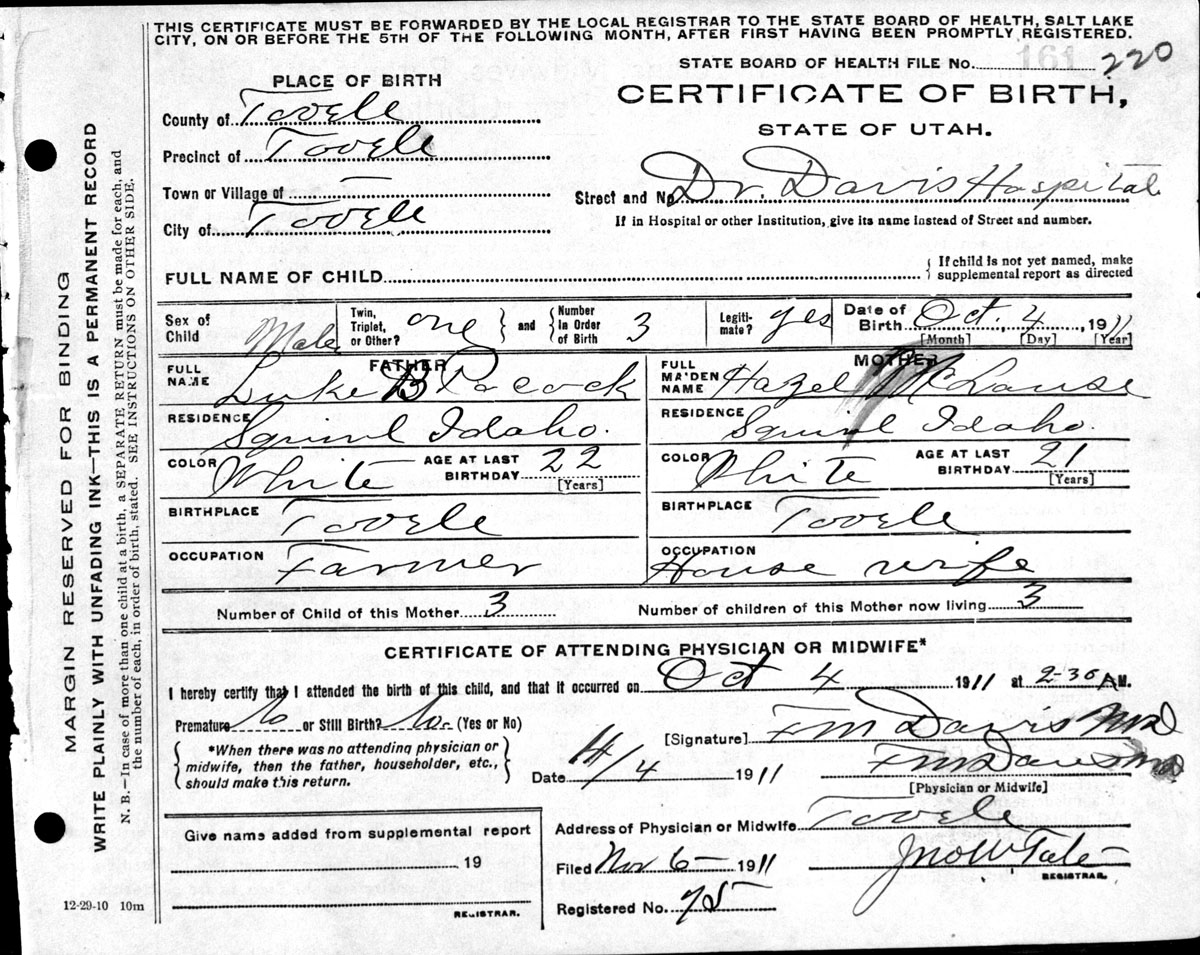 THIS CERTIFICATE MUST BE FORWARDED BY THE LOCAL REGISTRAR TO THE STATE BOARD OF HEALTH, SALT LAKE
CITY, ON OR BEFORE THE 5TH OF THE FOLLOWING MONTH, AFTER FIRST HAVING BEEN PROMPTLY REGISTERED.
STATE BOARD OF HEALTH FILE No. 161 220
PLACE OF BIRTH
CERTIFICATE OF BIRTH,
STATE OF UTAH.
County of Tooele
Precinct of Tooele
Town or Village of —
Street and No. Dr. Davis Hospital
City of Tooele
If in Hospital or other Institution, give its name instead of Street and number.
FULL NAME OF CHILD
{ If child is not yet named, make
supplemental report as directed
Sex of Child Male
Twin, Triplet, or Other? one } and { Number in Order of Birth 3
Legiti-mate? yes
Date of Birth Oct. 4, 1911
[Month] [Day] [Year]
FATHER
MOTHER
FULL NAME Luke B Pocock
FULL MAIDEN NAME Hazel McLause
RESIDENCE Squirrel Idaho.
RESIDENCE Squirrel Idaho.
COLOR White AGE AT LAST BIRTHDAY 22 [Years]
COLOR White AGE AT LAST BIRTHDAY 21 [Years]
BIRTHPLACE Tooele
BIRTHPLACE Tooele
OCCUPATION Farmer
OCCUPATION House wife
Number of Child of this Mother 3
Number of children of this Mother now living 3
CERTIFICATE OF ATTENDING PHYSICIAN OR MIDWIFE*
I hereby certify that I attended the birth of this child, and that it occurred on Oct 4 1911 at 2-30 A M.
Premature No or Still Birth? No. (Yes or No)
*When there was no attending physician or
midwife, then the father, householder, etc.,
should make this return.
[Signature] F M Davis MD
Date 11/4 1911 F M Davis MD
[Physician or Midwife]
Give name added from supplemental report
19
REGISTRAR.
Address of Physician or Midwife Tooele
Filed Nov 6 – 1911 Jno W Tate
REGISTRAR.
Registered No. 75
12-29-10 10m
MARGIN RESERVED FOR BINDING
WRITE PLAINLY WITH UNFADING INK—THIS IS A PERMANENT RECORD
N. B.—In case of more than one child at a birth, a SEPARATE RETURN must be made for each, and
the number of each, in order of birth, stated. SEE INSTRUCTIONS ON OTHER SIDE.